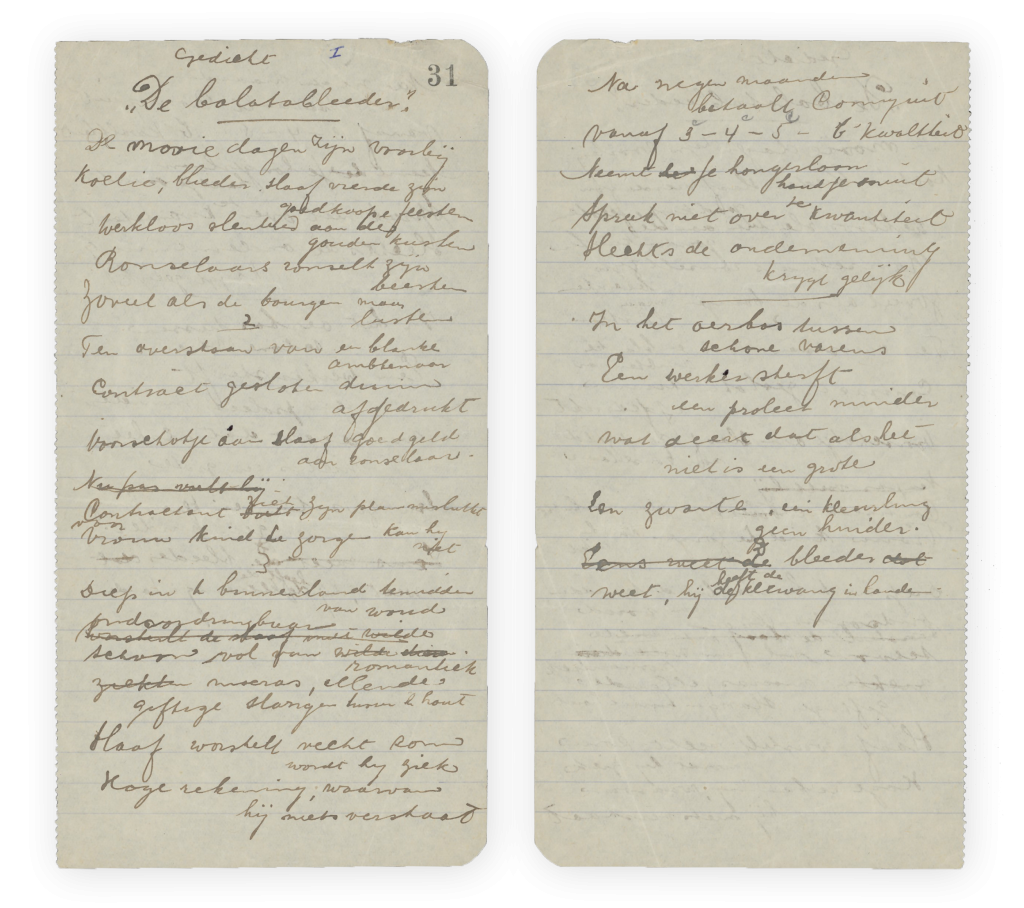 Gedicht I
31
„De balatableeder".
De mooie dagen zijn voorbij
Koelie, bleeder, slaaf vierde zijn
goedkoope feesten
Werkloos slenterd aan de
gouden kusten
Ronselaars ronselt zijn
beesten
Zoveel als de bourgen maar
lusten
2
Ten overstaan van en blanke
ambtenaar
Contract gesloten duim
afgedrukt
Voorschotje aan slaaf goedgeld
aan ronselaar.
Contractant ziet zijn plan mislukt
voor
Vrouw kind te zorge kan hij
niet
3
Diep in 't binnenland temidden
van woud
ondoordringbaar
worsteld de slaaf met wilde
schoon vol van wilde dieren.
romantiek
ziekten moeras, ellende
giftige slangen boven 't hout
Slaaf worstelt vecht som
wordt hij ziek
Hoge rekening, waarvan
hij niets verstaat
Na negen maanden
betaalt Compagnie
vanaf 3e - 4e - 5e - 6e kwaliteit
Neemt de je hongerloon
houd je snuit
Spreek niet over de kwantiteit
Slechts de onderneming
krygt gelijk
In het oerbos tussen
schone varens
Een werker sterft
een proleet minder
wat deert dat als het
niet is een grote
Een zwarte, een kleurling
geen hinder.
Eens weet de bleeder dat
weet, hij heeft de kleewang in handen